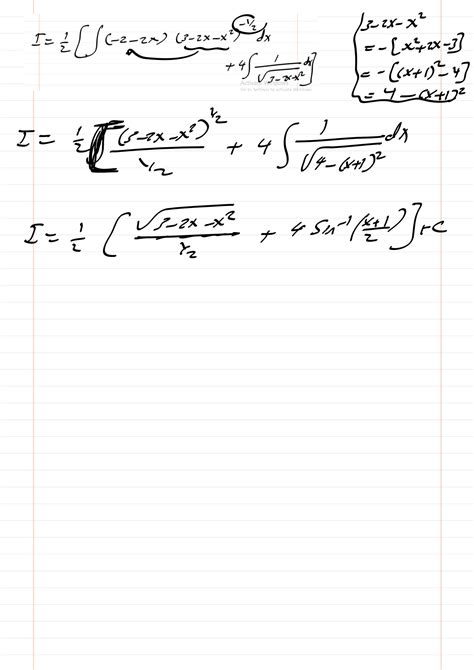 I = 1/2 [ ∫ (-2-2x) (3-2x-x²)^(-1/2) dx
+ 4 ∫ 1/√(3-2x-x²) dx ]
3-2x-x²
= -[x²+2x-3]
= -[(x+1)²-4]
= 4-(x+1)²
I = 1/2 [ (3-2x-x²)^(1/2) / (1/2) + 4 ∫ 1/√(4-(x+1)²) dx
I = 1/2 [ √(3-2x-x²) / (1/2) + 4 Sin⁻¹ ((x+1)/2) ] + C